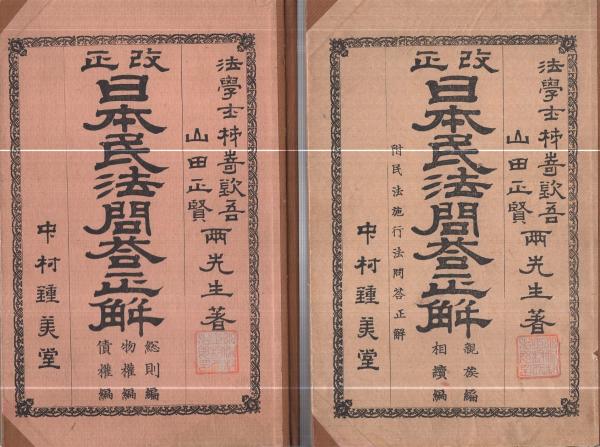 法學士柿嵜欽吾
山田正賢
兩先生著
改正
日本民法問荅正解
総則編
物權編
債權編
中村鍾美堂
法學士柿嵜欽吾
山田正賢
兩先生著
改正
日本民法問荅正解
附民法施行法問答正解
親族編
相續編
中村鍾美堂